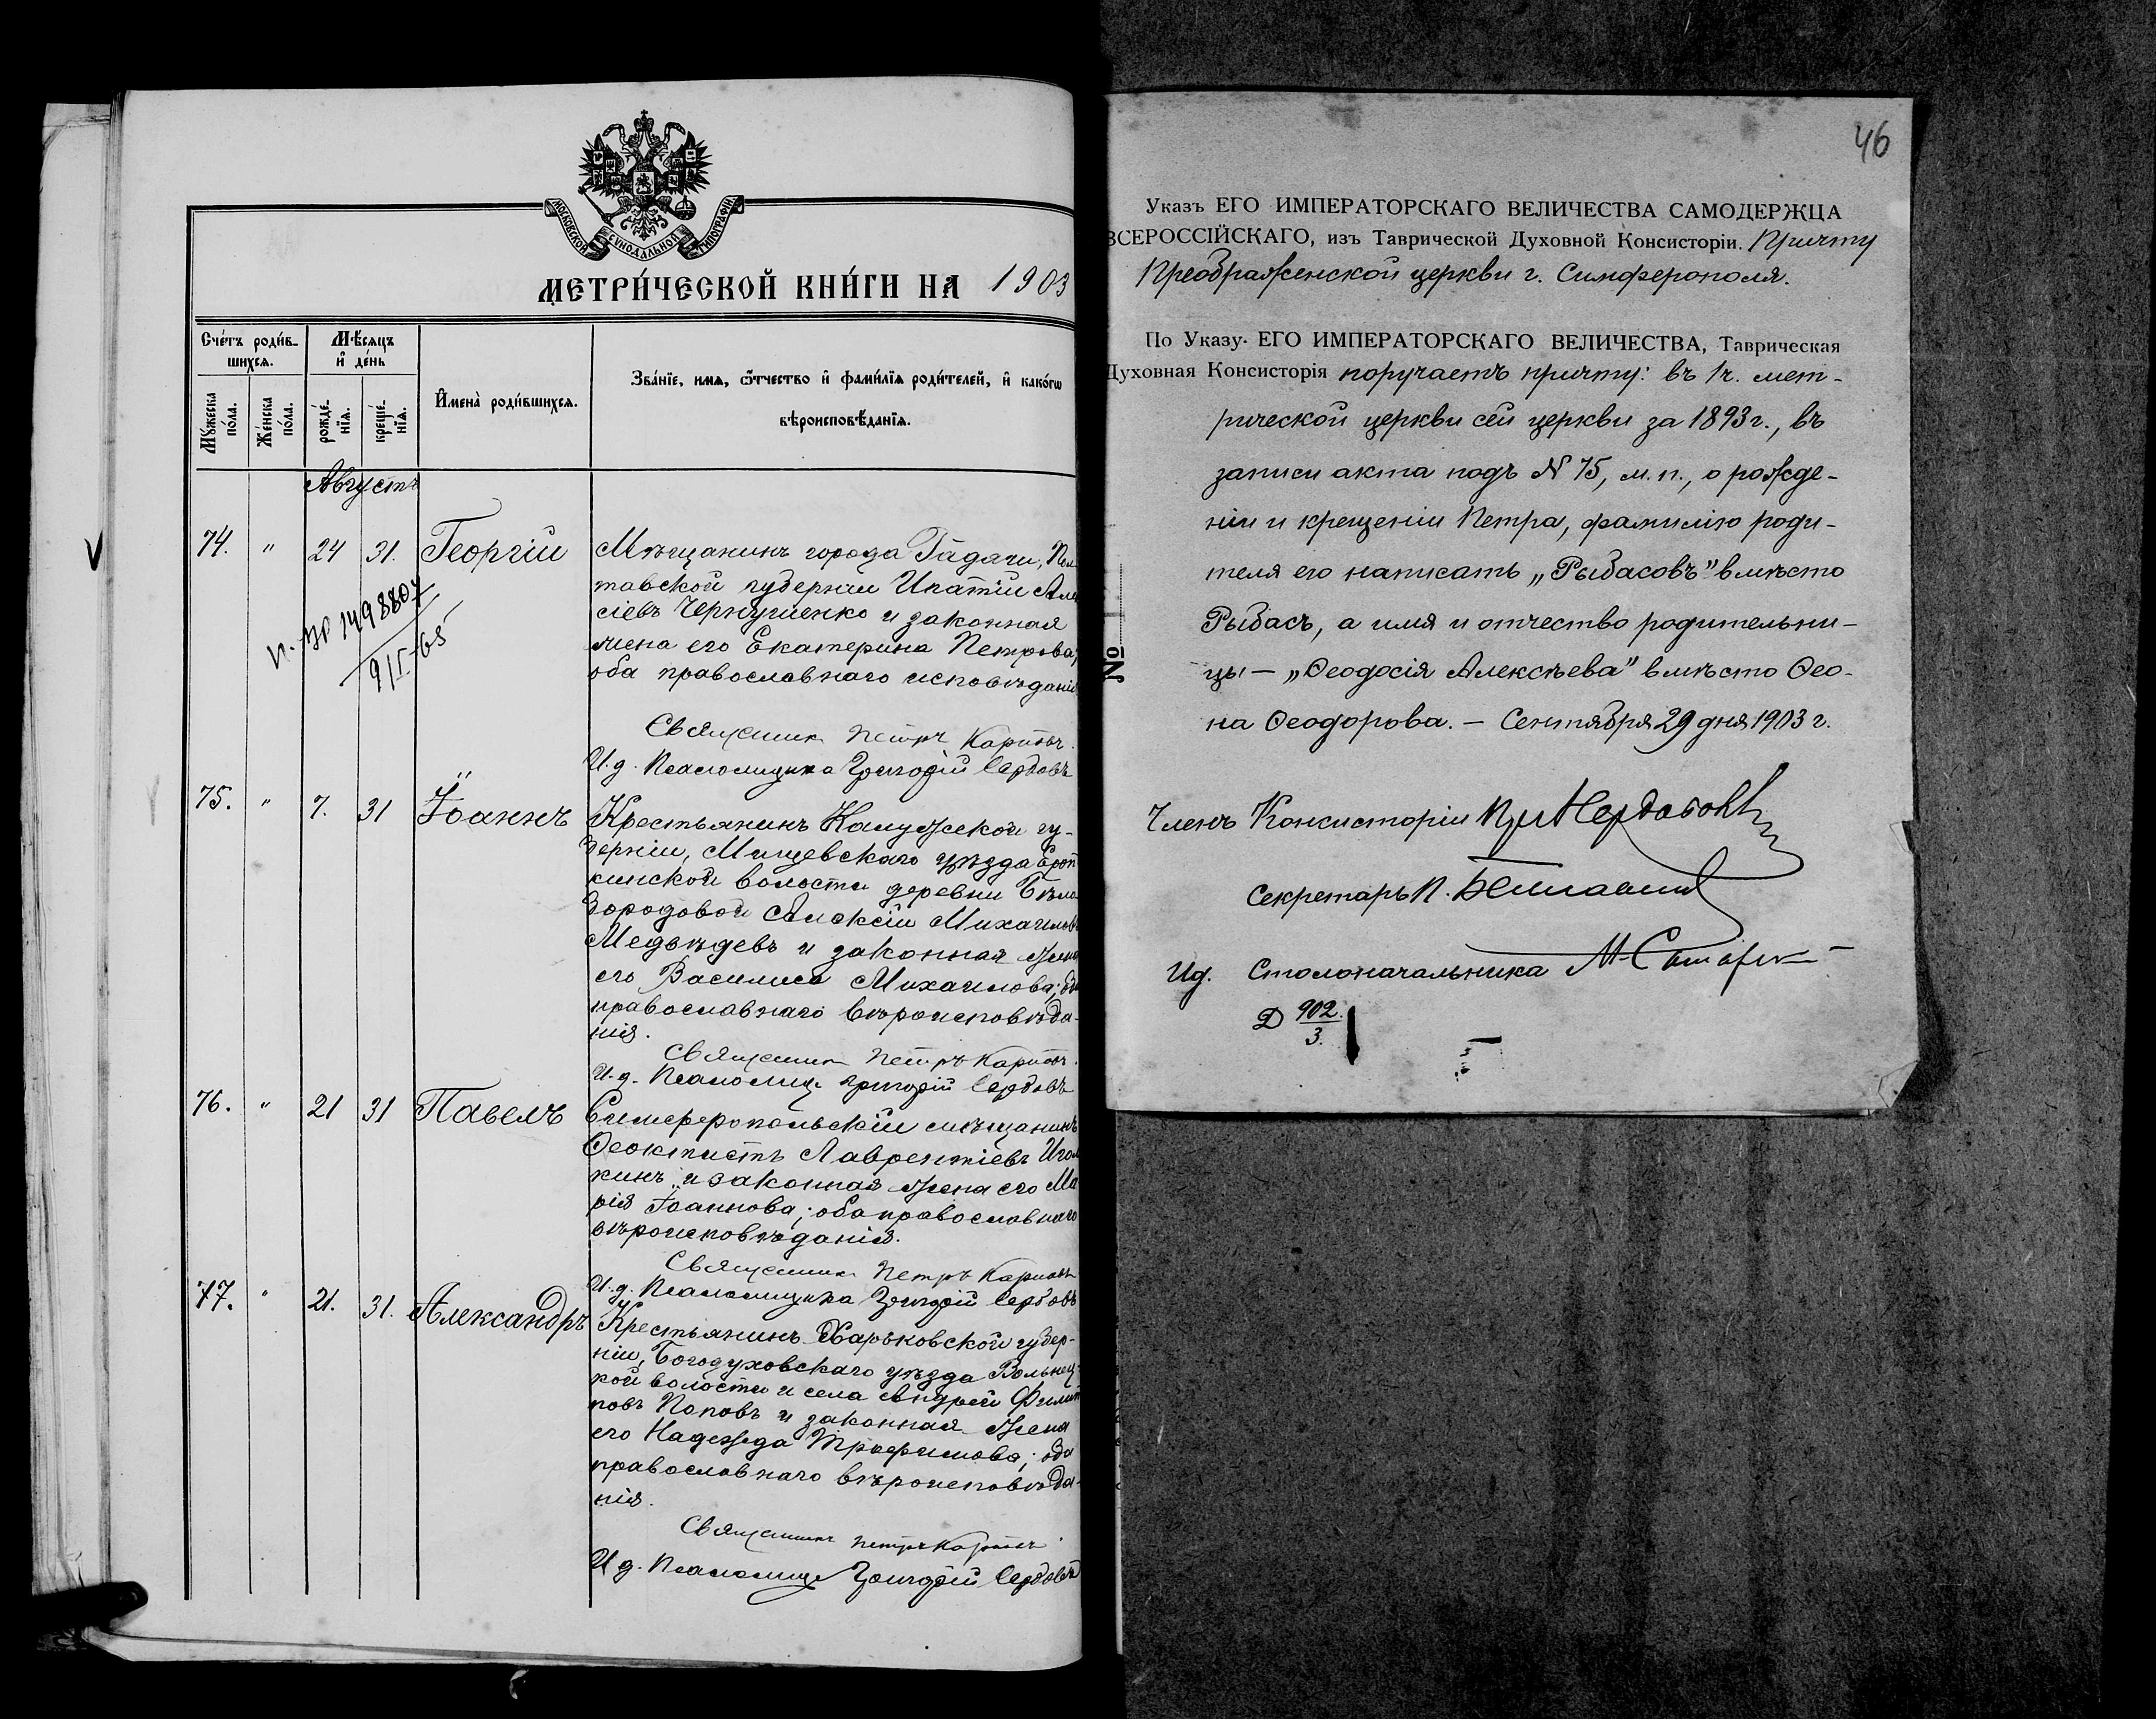 МОСКОВСКОЙ СѴНОДАЛЬНОЙ ТИПОГРАФІИ
МЕТРИ́ЧЕСКОЙ КНИ́ГИ НА 1903
Сче́тъ роди́в-
шихся.
Мѣ́сяцъ
и҆ де́нь
И҆мена̀ роди́вшихся.
Зва́нїе, имѧ, ѻ҆́тчество и҆ фами́лїѧ роди́телей, и҆ како́гѡ
вѣроисповѣ́данїѧ.
Мꙋ́жеска
по́ла.
Же́нска
по́ла.
рожде́-
нїѧ.
креще́-
нїѧ.
Августъ
74. " 24 31. Георгій
Мѣщанинъ города Гадячи, Пол
тавской губерніи Ипатій Але
сіевъ Чернушенко и законная
жена его Екатерина Петрова;
оба православнаго исповѣданія
п. 149880
9/I-65
Священникъ Петръ
И.д. Псаломщика Григорій Сербовъ
75. " 7. 31 Іоаннъ
Крестьянинъ Калужской гу-
берніи, Мищевскаго уѣзда
кинской волости деревни Бѣло
бородовой Алексій Михаиловъ
Медвѣдевъ и законная жена
его Василиса Михаилова; оба
православнаго вѣроисповѣда-
нія.
Священникъ Петръ
И.д. Псаломщ. Григорій Сербовъ
76. " 21 31 Павелъ
Симферопольскій мѣщанинъ
Ѳеоктистъ Лаврентіевъ Игол
кинъ и законная жена его Ма
рія Іоаннова; оба православнаго
вѣроисповѣданія.
Священникъ Петръ
И.д. Псаломщика Григорій Сербовъ
77. " 21. 31. Александръ
Крестьянинъ Харьковской губер-
ніи, Богодуховскаго уѣзда
кой волости и села Андрей Филип
повъ Поповъ и законная жена
его Надежда Трофимова; оба
православнаго вѣроисповѣда-
нія.
Священникъ Петръ
И.д. Псаломщ. Григорій Сербовъ
46
Указъ ЕГО ИМПЕРАТОРСКАГО ВЕЛИЧЕСТВА САМОДЕРЖЦА
ВСЕРОССІЙСКАГО, изъ Таврической Духовной Консисторіи. Причту
Преображенской церкви г. Симферополя.
По Указу. ЕГО ИМПЕРАТОРСКАГО ВЕЛИЧЕСТВА, Таврическая
Духовная Консисторія поручаетъ причту: въ 1ч. мет-
рической церкви сей церкви за 1893 г., въ
записи акта подъ N 75, м.п., о рожде-
ніи и крещеніи Петра, фамилію роди-
теля его написать „Рыбасовъ" вмѣсто
Рыбасъ, а имя и отчество родительни-
цы — „Ѳеодосія Алексѣева" вмѣсто Ѳео-
на Ѳеодорова. — Сентября 29 дня 1903 г.
Членъ Консисторіи
Секретарь П.
Ид. Столоначальника М.
Д 902.
3.
№